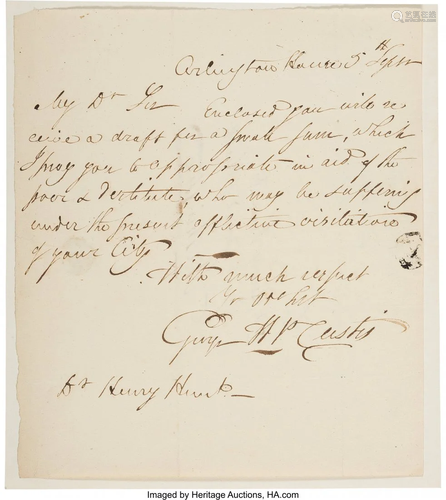 Arlington House 5th Sepr
My Dr Sir Enclosed you will re
ceive a draft for a small sum, which
I pray you to appropriate in aid of the
poor & destitute, who may be suffering
under the present afflictive visitation
of your City
With much respect
Yr Obt Svt
George W P Custis
Dr Henry Hunt
Imaged by Heritage Auctions, HA.com